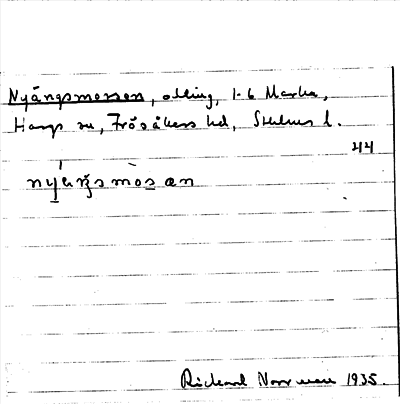 Nyängsmossen, odling, 1-6 Marka,
Hargs sn, Frösåkers hd, Sthlms l.
44
nyæŋsmòsæn
Rickard Norrman 1935.